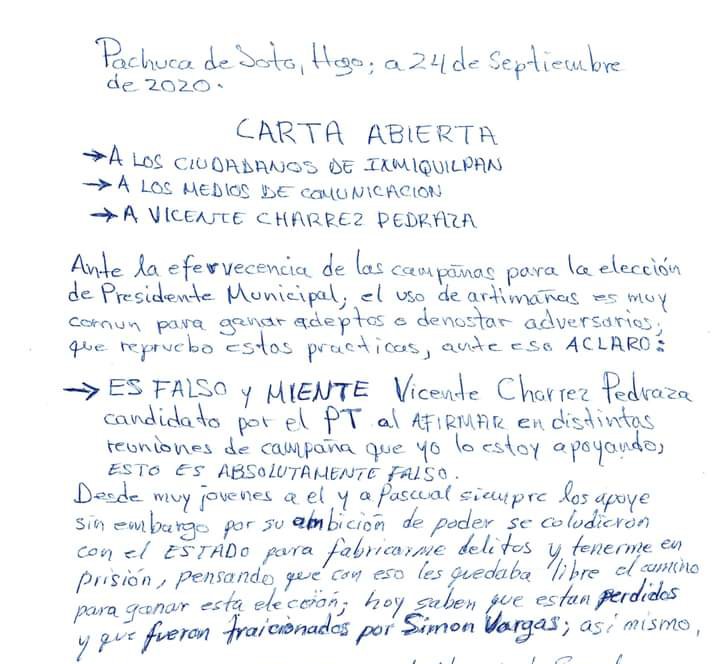 Pachuca de Soto, Hgo; a 24 de Septiembre
de 2020.
CARTA ABIERTA
→ A LOS CIUDADANOS DE IXMIQUILPAN
→ A LOS MEDIOS DE COMUNICACION
→ A VICENTE CHARREZ PEDRAZA
Ante la efervecencia de las campañas para la elección
de Presidente Municipal, el uso de artimañas es muy
comun para ganar adeptos o denostar adversarios,
que repruebo estas practicas, ante eso ACLARO:
→ ES FALSO y MIENTE Vicente Charrez Pedraza
candidato por el PT al AFIRMAR en distintas
reuniones de campaña que yo lo estoy apoyando,
ESTO ES ABSOLUTAMENTE FALSO.
Desde muy jovenes a el y a Pascual siempre los apoye
sin embargo por su ambición de poder se coludieron
con el ESTADO para fabricarme delitos y tenerme en
prisión, pensando que con eso les quedaba libre el camino
para ganar esta elección; hoy saben que estan perdidos
y que fueron traicionados por Simon Vargas; así mismo,